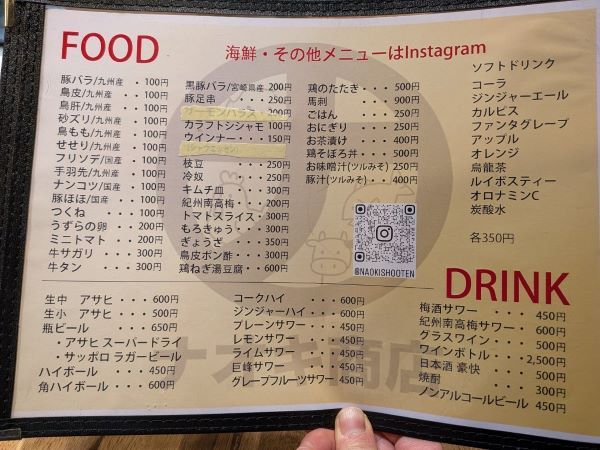 FOOD
海鮮・その他メニューはInstagram
豚バラ/九州産 ・100円
鳥皮/九州産 ・・100円
鳥肝/九州産 ・・100円
砂ズリ/九州産 ・100円
鳥もも/九州産 ・100円
せせり/九州産 ・100円
フリソデ/国産 ・100円
手羽先/九州産 ・100円
ナンコツ/国産 ・100円
豚ほほ/国産 ・・100円
つくね ・・・・・100円
うずらの卵 ・・・200円
ミニトマト ・・・200円
牛サガリ ・・・・300円
牛タン ・・・・・300円
黒豚バラ/宮崎県産 200円
豚足串 ・・・・・250円
サーモンハラス・・200円
カラフトシシャモ 100円
ウインナー ・・・150円
枝豆 ・・・・・・250円
冷奴 ・・・・・・250円
キムチ皿 ・・・・300円
紀州南高梅 ・・・200円
トマトスライス・・300円
もろきゅう ・・・300円
ぎょうざ ・・・・350円
鳥皮ポン酢 ・・・300円
鶏ねぎ湯豆腐 ・・600円
鶏のたたき・・・500円
馬刺 ・・・・・900円
ごはん ・・・・250円
おにぎり ・・・250円
お茶漬け ・・・400円
鶏そぼろ丼・・・500円
お味噌汁(ツルみそ) 250円
豚汁(ツルみそ) ・・400円
@NAOKISHOOTEN
ソフトドリンク
コーラ
ジンジャーエール
カルピス
ファンタグレープ
アップル
オレンジ
烏龍茶
ルイボスティー
オロナミンC
炭酸水
各350円
DRINK
生中 アサヒ ・・・600円
生小 アサヒ ・・・500円
瓶ビール ・・・・650円
・アサヒ スーパードライ
・サッポロ ラガービール
ハイボール ・・・・450円
角ハイボール ・・・600円
コークハイ ・・・・600円
ジンジャーハイ ・・600円
プレーンサワー ・・450円
レモンサワー ・・・450円
ライムサワー ・・・450円
巨峰サワー ・・・・450円
グレープフルーツサワー 450円
梅酒サワー ・・・・450円
紀州南高梅サワー・・600円
グラスワイン ・・・500円
ワインボトル ・・2,500円
日本酒 豪快 ・・・500円
焼酎 ・・・・・・300円
ノンアルコールビール 450円
ナオキ商店